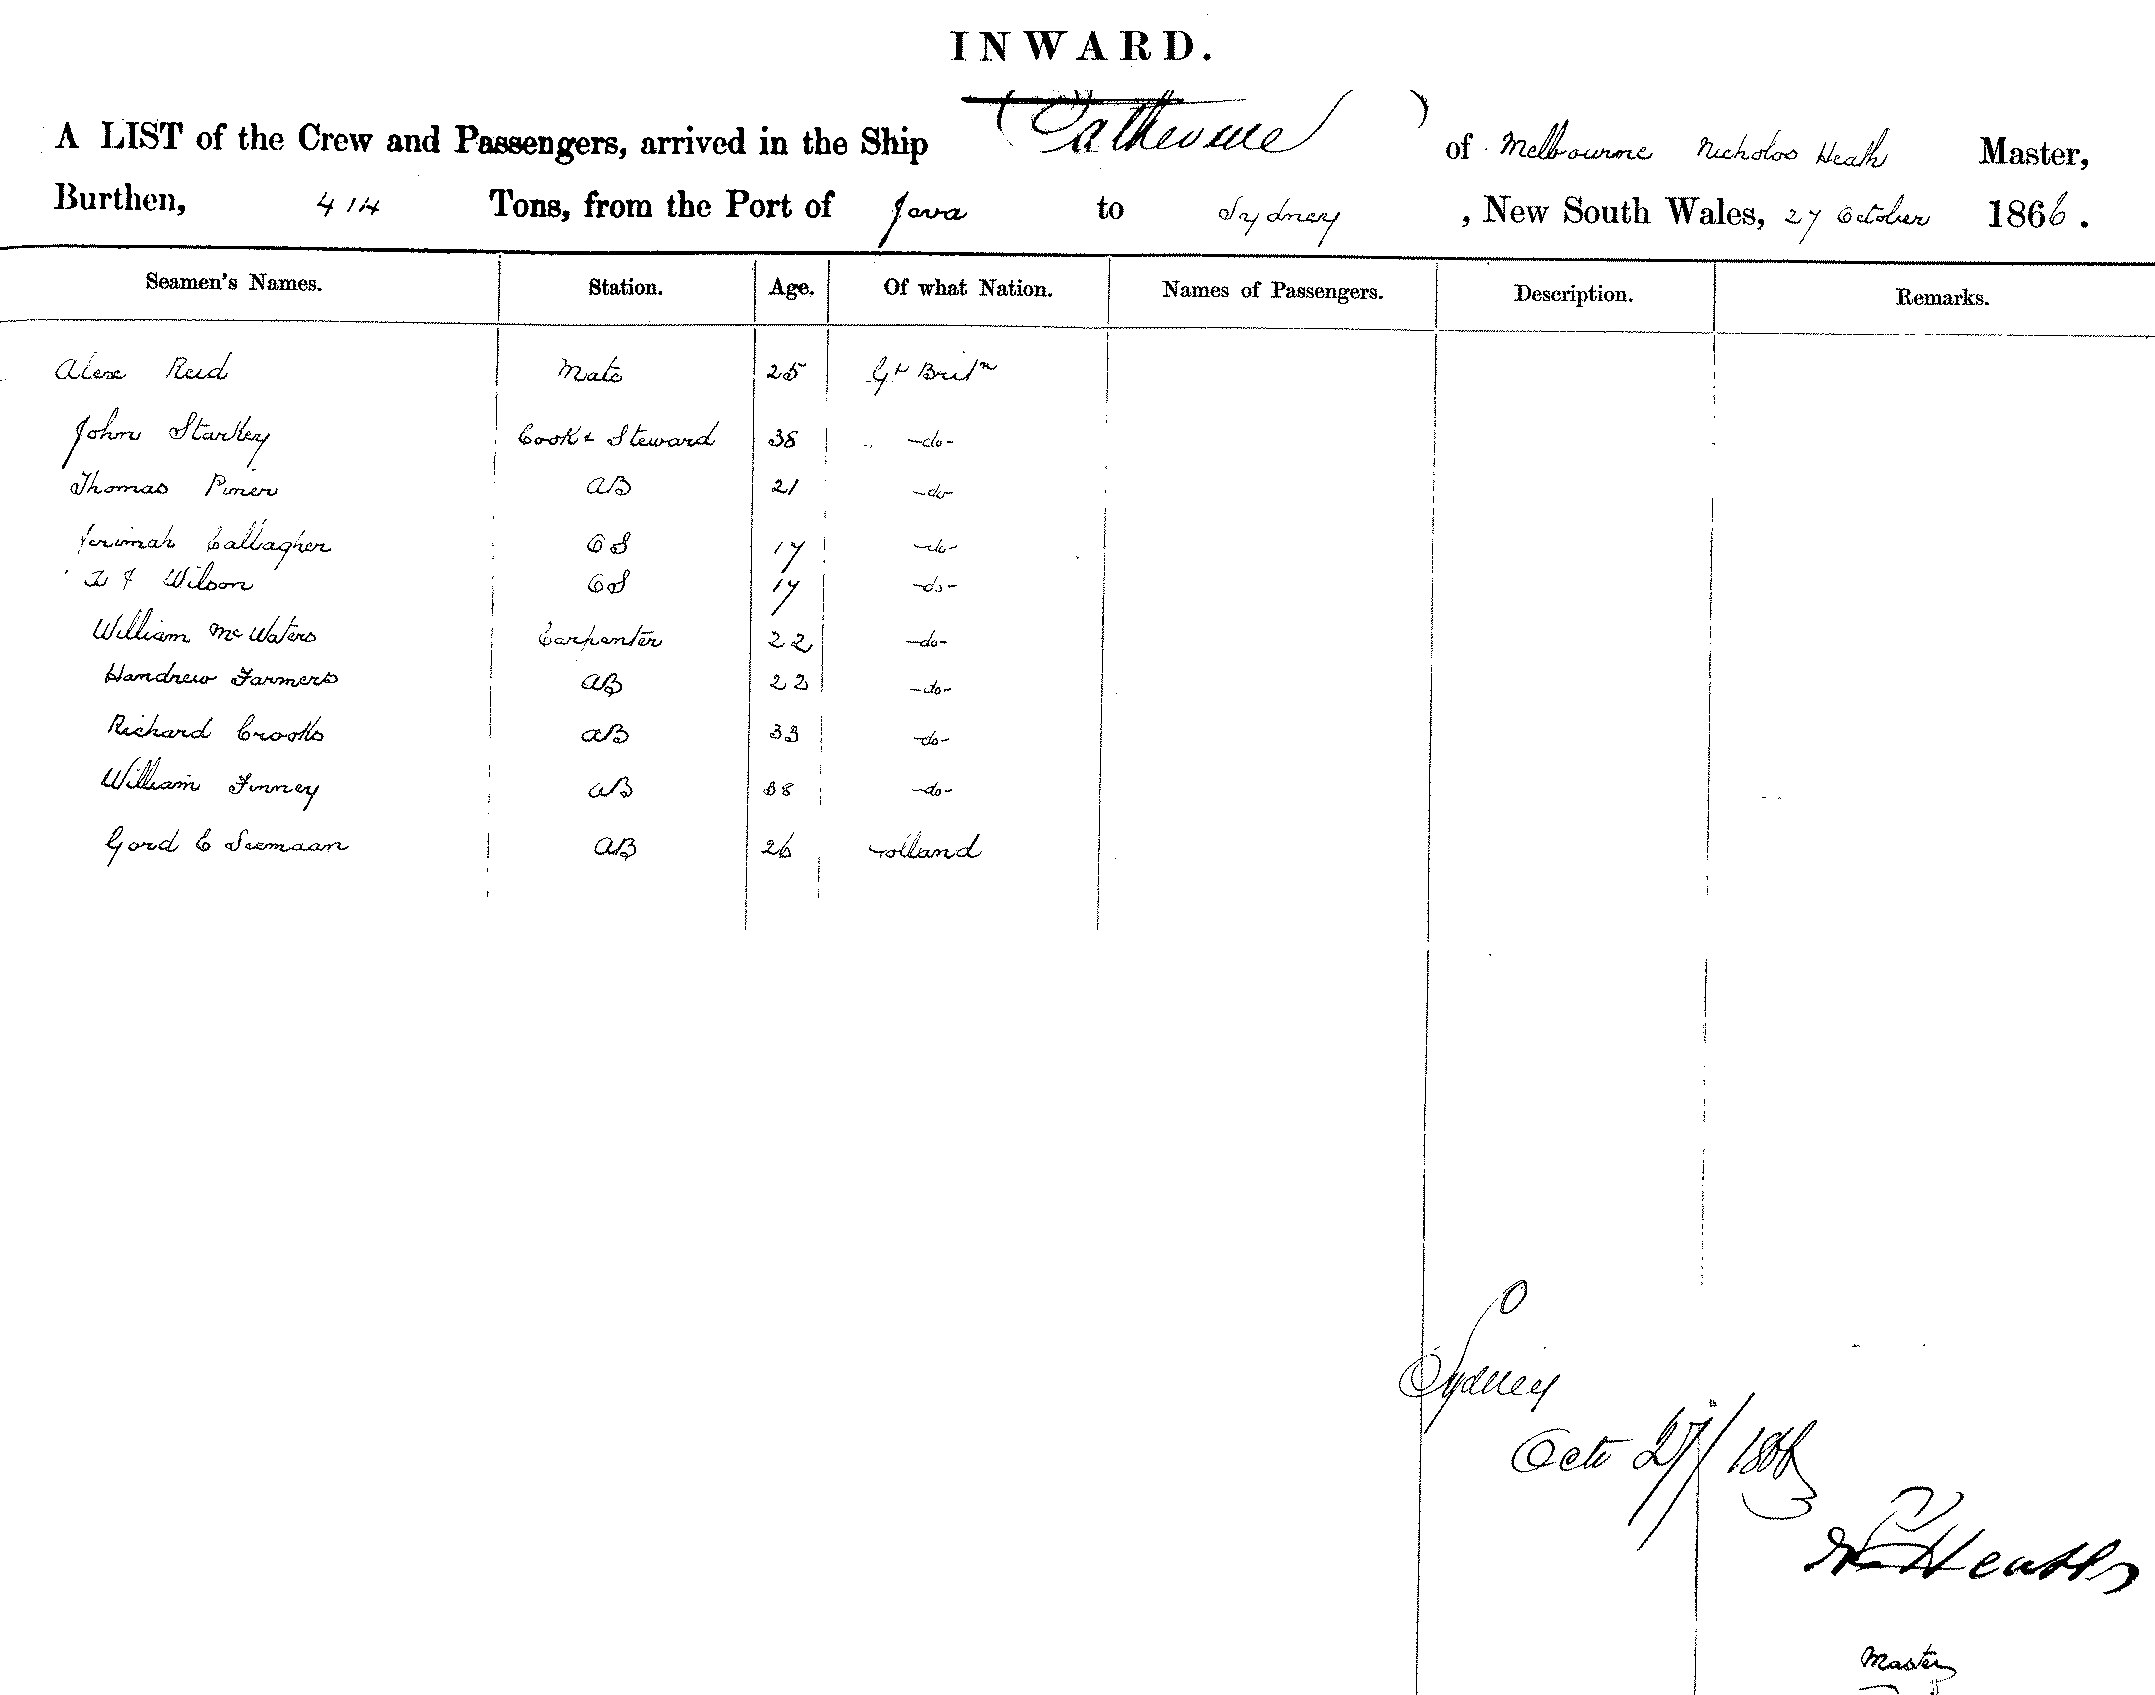 INWARD.
A LIST of the Crew and Passengers, arrived in the Ship (Catherine) of Melbourne Nicholas Heath Master,
Burthen, 414 Tons, from the Port of Java to Sydney, New South Wales, 27 October 1866.
Seamen's Names. Station. Age. Of what Nation. Names of Passengers. Description. Remarks.
Alexr Reid Mate 25 Gt Britn
John Starkey Cook & Steward 38 -do-
Thomas Piner AB 21 -do-
Jerimah Callagher OS 17 -do-
Wilson OS 17 -do-
William McWaters Carpenter 22 -do-
Handrew Farmers AB 22 -do-
Richard Crooks AB 33 -do-
William Finney AB 38 -do-
Gord C Seemaan AB 26 Holland
Sydney
Octr 27/1866
N Heath
Master